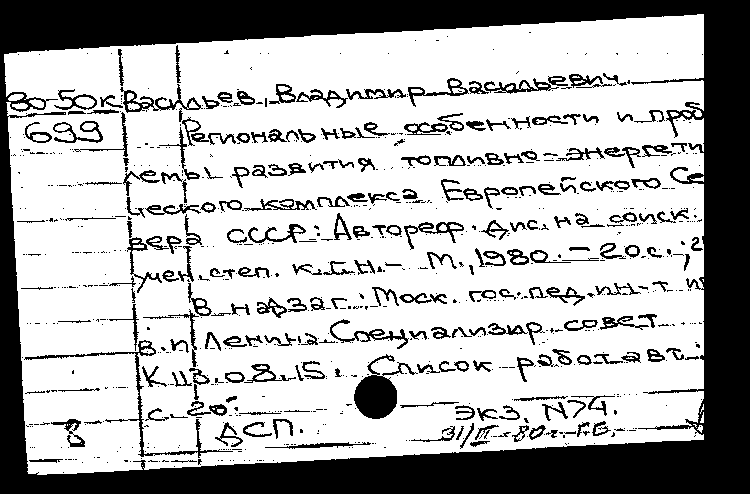 80-50к Васильев, Владимир Васильевич.
699 Региональные особенности и проб
лемы развития топливно-энергети
ческого комплекса Европейского Се
вера СССР: Автореф. дис. на соиск.
учен. степ. к.г.н. – М., 1980. – 20 с.;
В надзаг.: Моск. гос. пед. ин-т
в.п. Ленина. Специализир. совет
К 113.08.15. Список работ авт.:
с. 20.
8 ДСП. экз. N74.
31/III-80г.